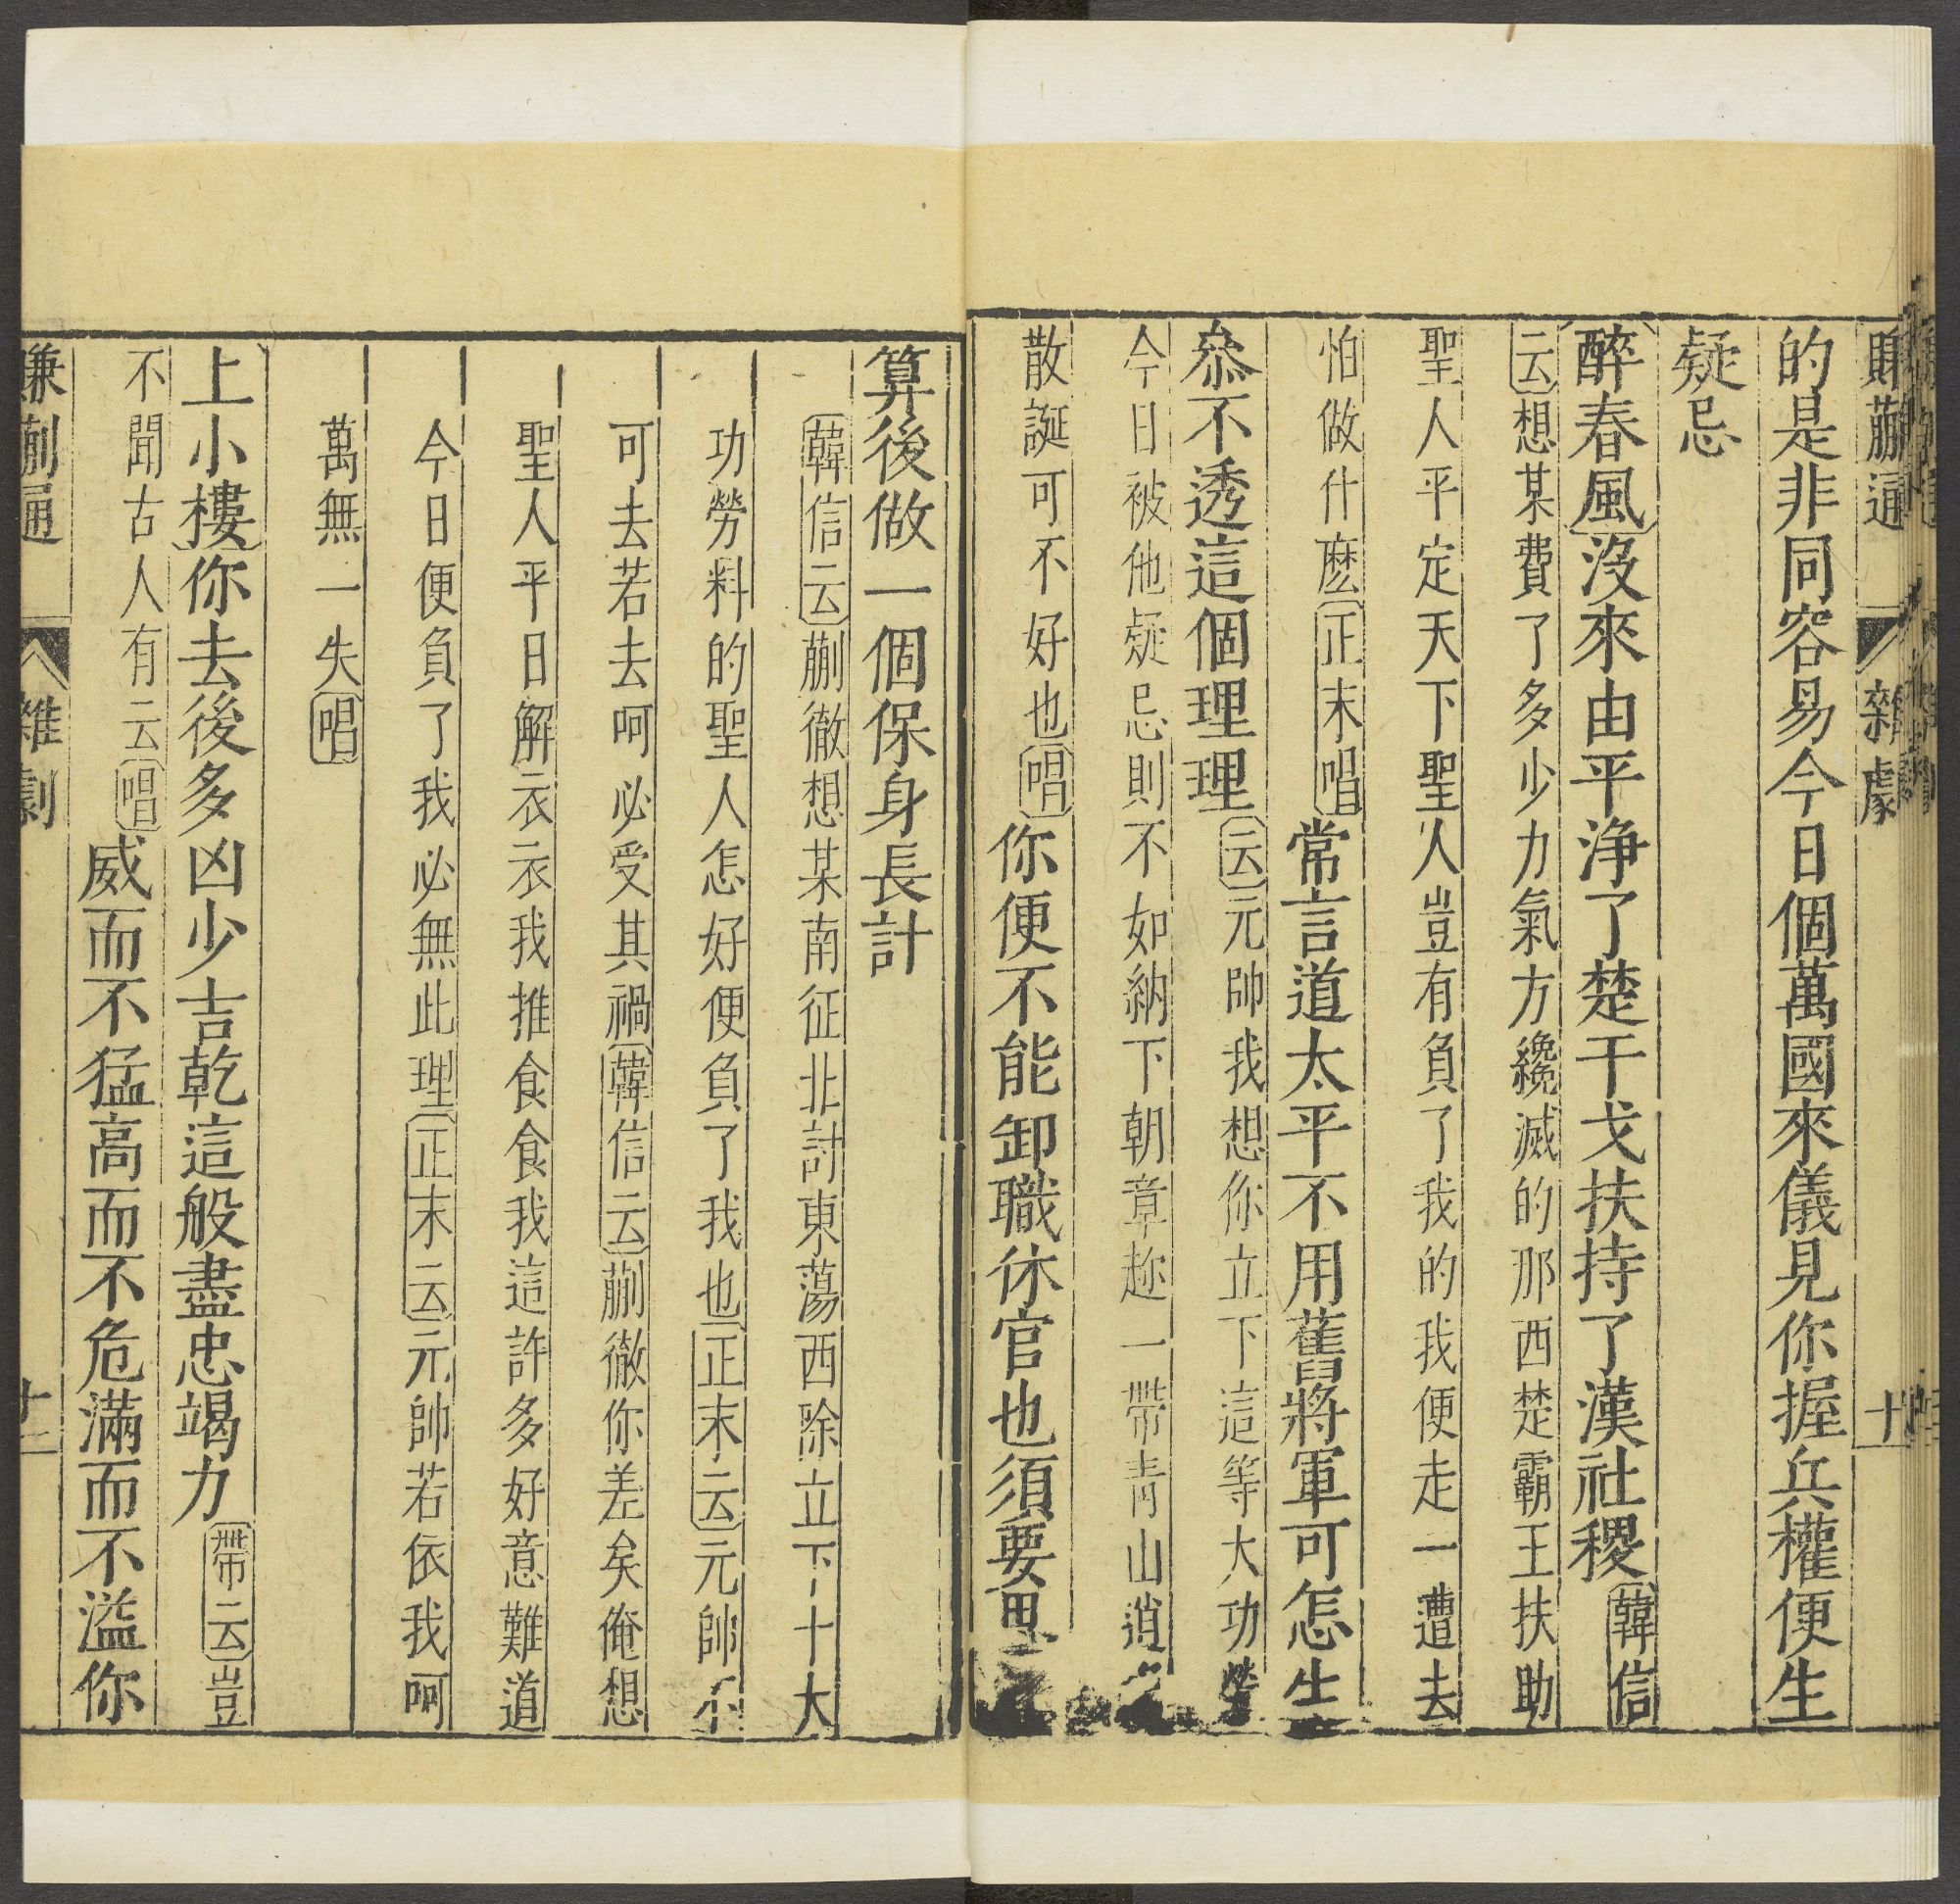 賺蒯通　雜劇　十
的是非同容易今日個萬國來儀見你握兵權便生
疑忌
醉春風沒來由平净了楚干戈扶持了漢社稷韓信
云想某費了多少力氣方纔滅的那西楚霸王扶助
聖人平定天下聖人豈有負了我的我便走一遭去
怕做什麽正末唱常言道太平不用舊將軍可怎生
叅不透這個理理云元帥我想你立下這等大功勞
今日被他疑忌則不如納下朝章趂一帶青山逍
散誕可不好也唱你便不能卸職休官也須要思
算後做一個保身長計
韓信云蒯徹想某南征北討東蕩西除立下十大
功勞料的聖人怎好便負了我也正末云元帥不
可去若去呵必受其禍韓信云蒯徹你差矣俺想
聖人平日解衣衣我推食食我這許多好意難道
今日便負了我必無此理正末云元帥若依我呵
萬無一失唱
上小樓你去後多凶少吉乾這般盡忠竭力帶云豈
不聞古人有云唱威而不猛高而不危滿而不溢你
賺蒯通　雜劇　十二